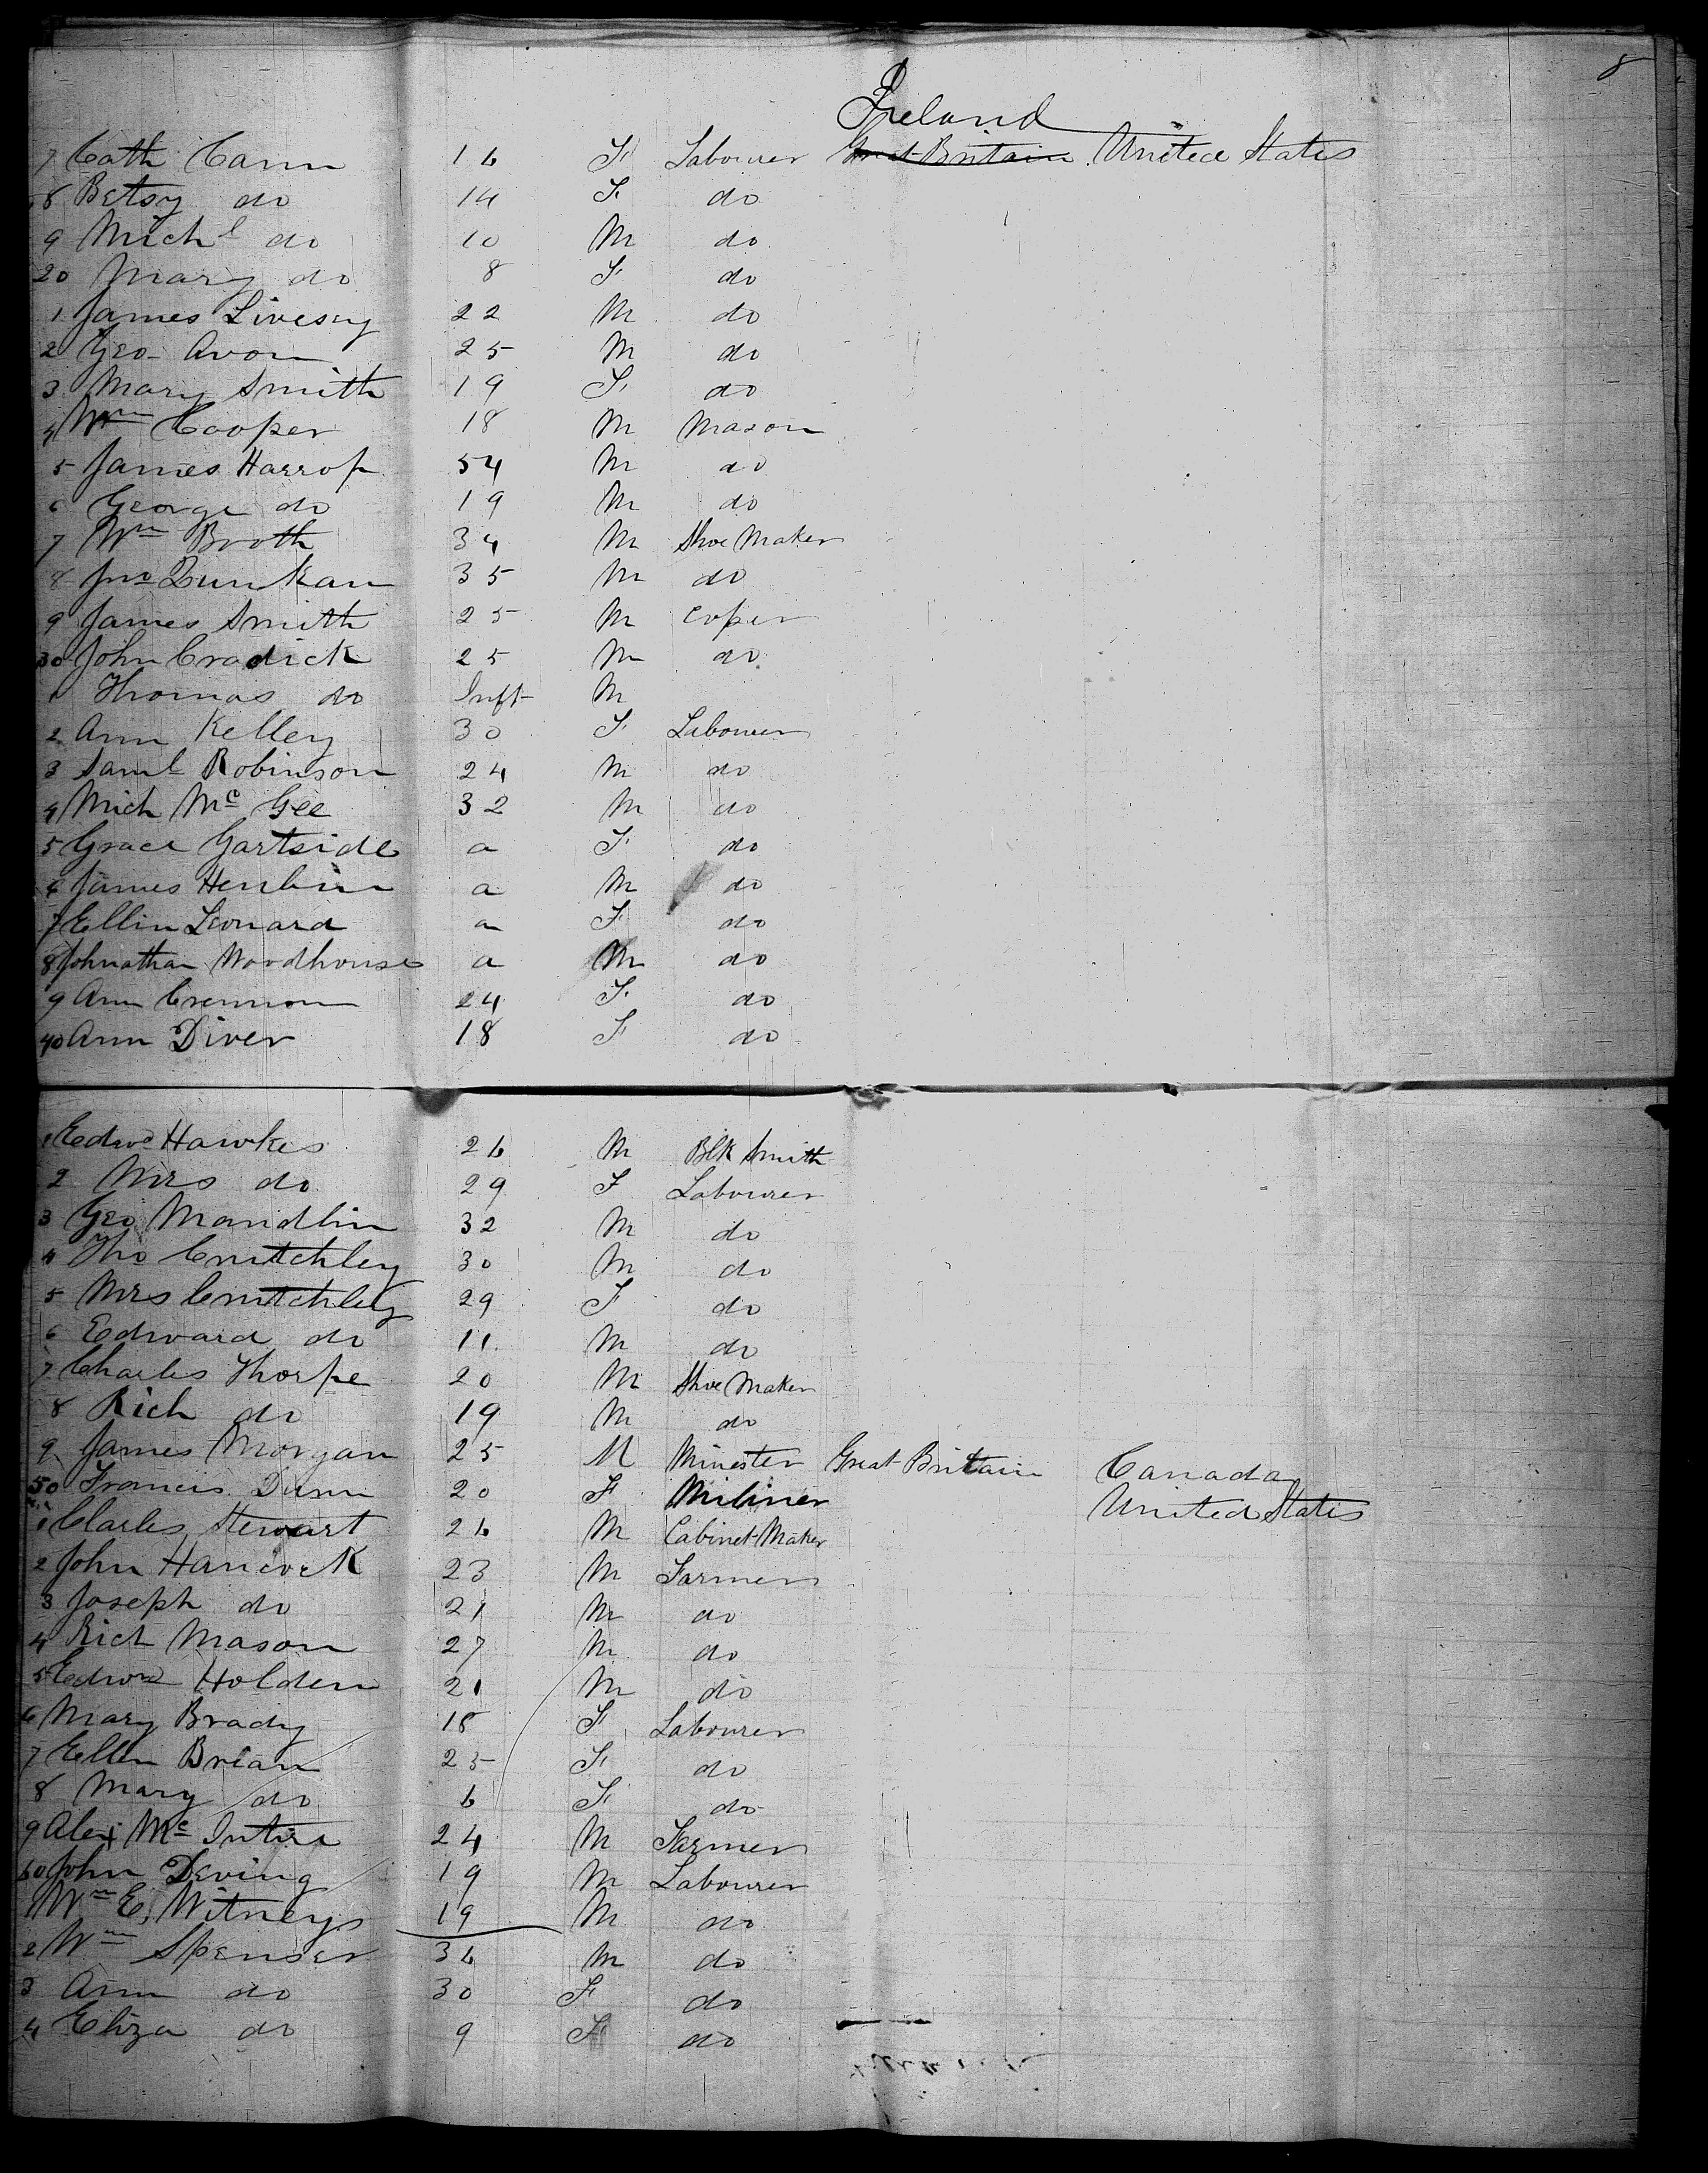 8
Ireland
7 Cath Cann 16 F Labourer Great Britain United States
8 Betsy do 14 F do
9 Michl do 10 M do
20 Mary do 8 F do
1 James Livesey 22 M do
2 Geo Avon 25 M do
3 Mary Smith 19 F do
4 Wm Cooper 18 M Mason
5 James Harrop 54 M do
6 George do 19 M do
7 Wm Broth 34 M Shoe Maker
8 Jno Dunkan 35 M do
9 James Smith 25 M Coper
30 John Cradick 25 M do
1 Thomas do Inft M
2 Ann Kelley 30 F Labourer
3 Saml Robinson 24 M do
4 Mich Mc Gee 32 M do
5 Grace Gartside a F do
6 James a M do
7 Ellin Leonard a F do
8 Johnathan Woodhouse a M do
9 Ann Crennon 24 F do
40 Ann Diver 18 F do
1 Edwd Hawkes 26 M Blk Smith
2 Mrs do 29 F Labourer
3 Geo Mandlin 32 M do
4 Tho Crutchley 30 M do
5 Mrs Crutchley 29 F do
6 Edward do 11 M do
7 Charles Thorpe 20 M Shoe Maker
8 Rich do 19 M do
9 James Morgan 25 M Minester Great Britain Canada
50 Francis Dunn 20 F Miliner United States
1 Clarles Stewart 26 M Cabinet Maker
2 John Hancock 23 M Farmer
3 Joseph do 21 M do
4 Rich Mason 27 M do
5 Edwd Holden 21 M do
6 Mary Brady 18 F Labourer
7 Ellen Brian 25 F do
8 Mary do 6 F do
9 Alex Mc Intire 24 M Farmer
60 John Deving 19 M Labourer
1 Wm E. Witneys 19 M do
2 Wm Spenser 36 M do
3 Ann do 30 F do
4 Eliza do 9 F do